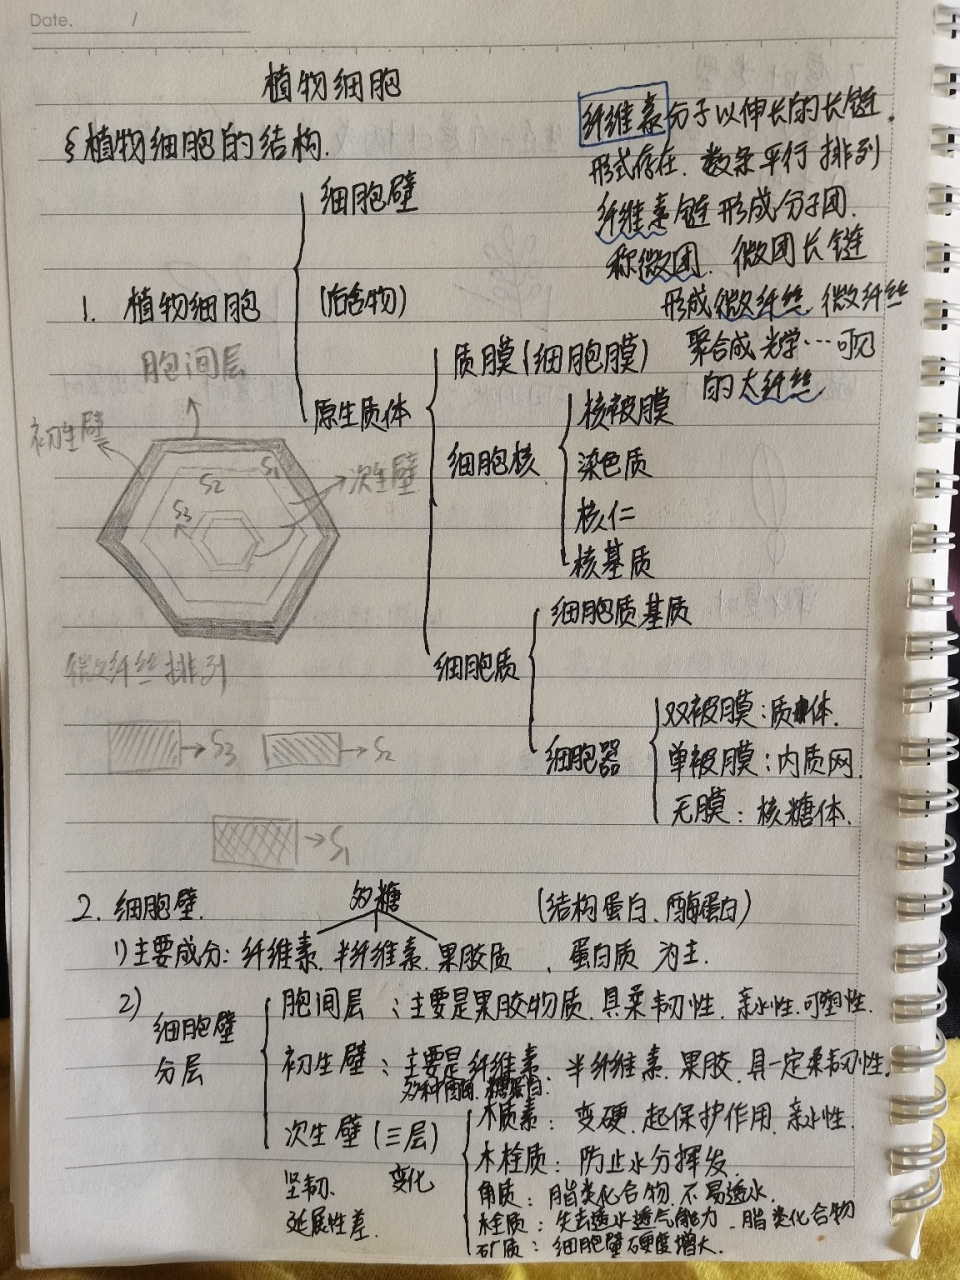 Date.      /
植物细胞
§植物细胞的结构.
纤维素分子以伸长的长链.
形式存在. 数条平行排列
纤维素链形成分子团.
称微团. 微团长链
形成微纤丝 微纤丝
聚合成光学…可见
的大纤丝
1. 植物细胞
细胞壁
(后含物)
原生质体
质膜(细胞膜)
细胞核
核被膜
染色质
核仁
核基质
细胞质
细胞质基质
细胞器
双被膜:质体.
单被膜:内质网.
无膜:核糖体.
胞间层
初生壁
次生壁
S1
S2
S3
微纤丝排列
→S3
→S2
→S1
2. 细胞壁.
多糖
(结构蛋白、酶蛋白)
1)主要成分:纤维素. 半纤维素. 果胶质 、蛋白质 为主.
2)
细胞壁
分层
胞间层 ;主要是果胶物质. 具柔韧性. 亲水性.可塑性.
初生壁 ;主要是纤维素. 半纤维素. 果胶. 具一定柔韧性.
多种酶. 糖蛋白.
次生壁(三层)
坚韧.
延展性差.
变化
木质素: 变硬. 起保护作用. 亲水性.
木栓质: 防止水分挥发.
角质: 脂类化合物. 不易透水.
栓质: 失去透水透气能力. 脂类化合物
矿质: 细胞壁硬度增大.